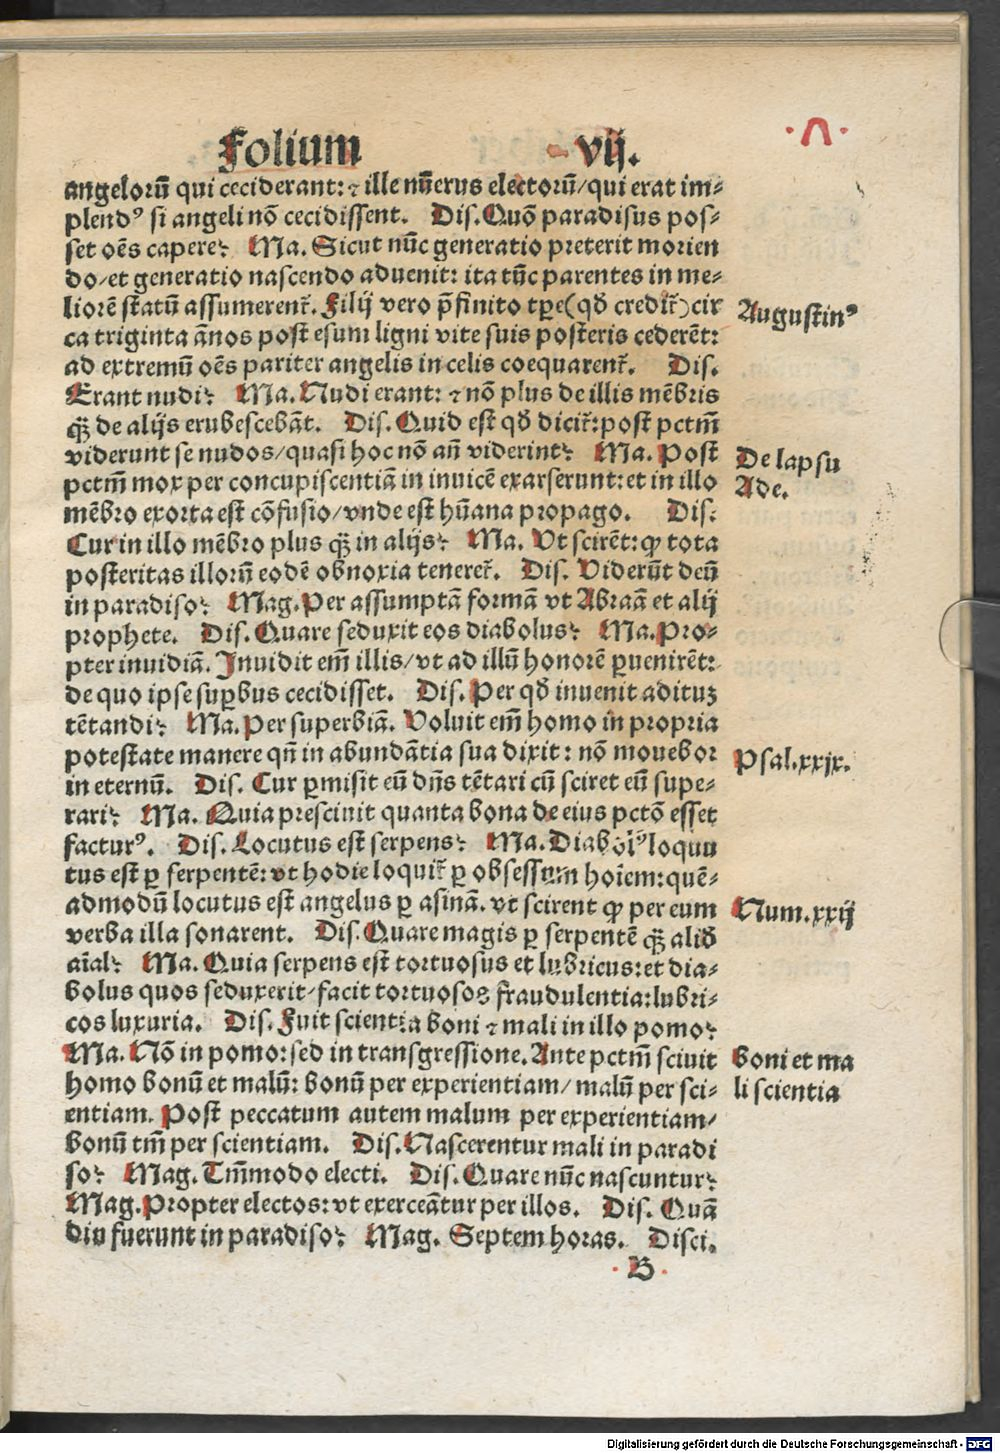 Folium vij.
·Λ·
angelorū qui ceciderant: ⁊ ille nūerus electorū/qui erat im⸗
plendꝰ si angeli nō cecidissent. Dis. Quō paradisus pos⸗
set oēs capere? Ma. Sicut nūc generatio preterit morien
do/et generatio nascendo aduenit: ita tūc parentes in me⸗
liorē statū assumerent̄. Filij vero p̄finito tꝑe (qð credit̄) cir
Augustinꝰ
ca triginta ānos post esum ligni vite suis posteris cederēt:
ad extremū oēs pariter angelis in celis coequarent̄. Dis.
Erant nudi? Ma. Nudi erant: ⁊ nō plus de illis mēbris
q̄ȝ de alijs erubescebāt. Dis. Quid est qð dicit̄: post pctm̄
viderunt se nudos/quasi hoc nō an̄ viderint? Ma. Post
De lapsu
pctm̄ mox per concupiscentiā in inuicē exarserunt: et in illo
Ade.
mēbro exorta est cōfusio/vnde est hūana propago. Dis.
Cur in illo mēbro plus q̄ȝ in alijs? Ma. Vt scirēt: ꝙ tota
posteritas illorū eodē obnoxia teneret̄. Dis. Viderūt deū
in paradiso? Mag. Per assumptā formā vt Abraā et alij
prophete. Dis. Quare seduxit eos diabolus? Ma. Pro⸗
pter inuidiā. Inuidit em̄ illis/vt ad illū honorē ꝑuenirēt:
de quo ipse suꝑbus cecidisset. Dis. Per qð inuenit adituȝ
tētandi? Ma. Per superbiā. Voluit em̄ homo in propria
potestate manere qn̄ in abundātia sua dixit: nō mouebor
Psal. xxix.
in eternū. Dis. Cur ꝑmisit eū dn̄s tētari cū sciret eū supe⸗
rari? Ma. Quia presciuit quanta bona de eius pctō esset
facturꝰ. Dis. Locutus est serpens? Ma. Diabolꝰ loquu
tus est ꝑ serpentē: vt hodie loquit̄ ꝑ obsessum hoīem: quē⸗
admodū locutus est angelus ꝑ asinā. vt scirent ꝙ per eum
Num. xxij
verba illa sonarent. Dis. Quare magis ꝑ serpentē q̄ȝ alið
aīal? Ma. Quia serpens est tortuosus et lubricus: et dia⸗
bolus quos seduxerit/facit tortuosos fraudulentia: lubri⸗
cos luxuria. Dis. Fuit scientia boni ⁊ mali in illo pomo?
Ma. Nō in pomo: sed in transgressione. Ante pctm̄ sciuit
boni et ma
homo bonū et malū: bonū per experientiam/ malū per sci⸗
li scientia
entiam. Post peccatum autem malum per experientiam/
bonū tm̄ per scientiam. Dis. Nascerentur mali in paradi
so? Mag. Tm̄modo electi. Dis. Quare nūc nascuntur?
Mag. Propter electos: vt exerceātur per illos. Dis. Quā
diu fuerunt in paradiso? Mag. Septem horas. Disci.
·B·
Digitalisierung gefördert durch die Deutsche Forschungsgemeinschaft - DFG